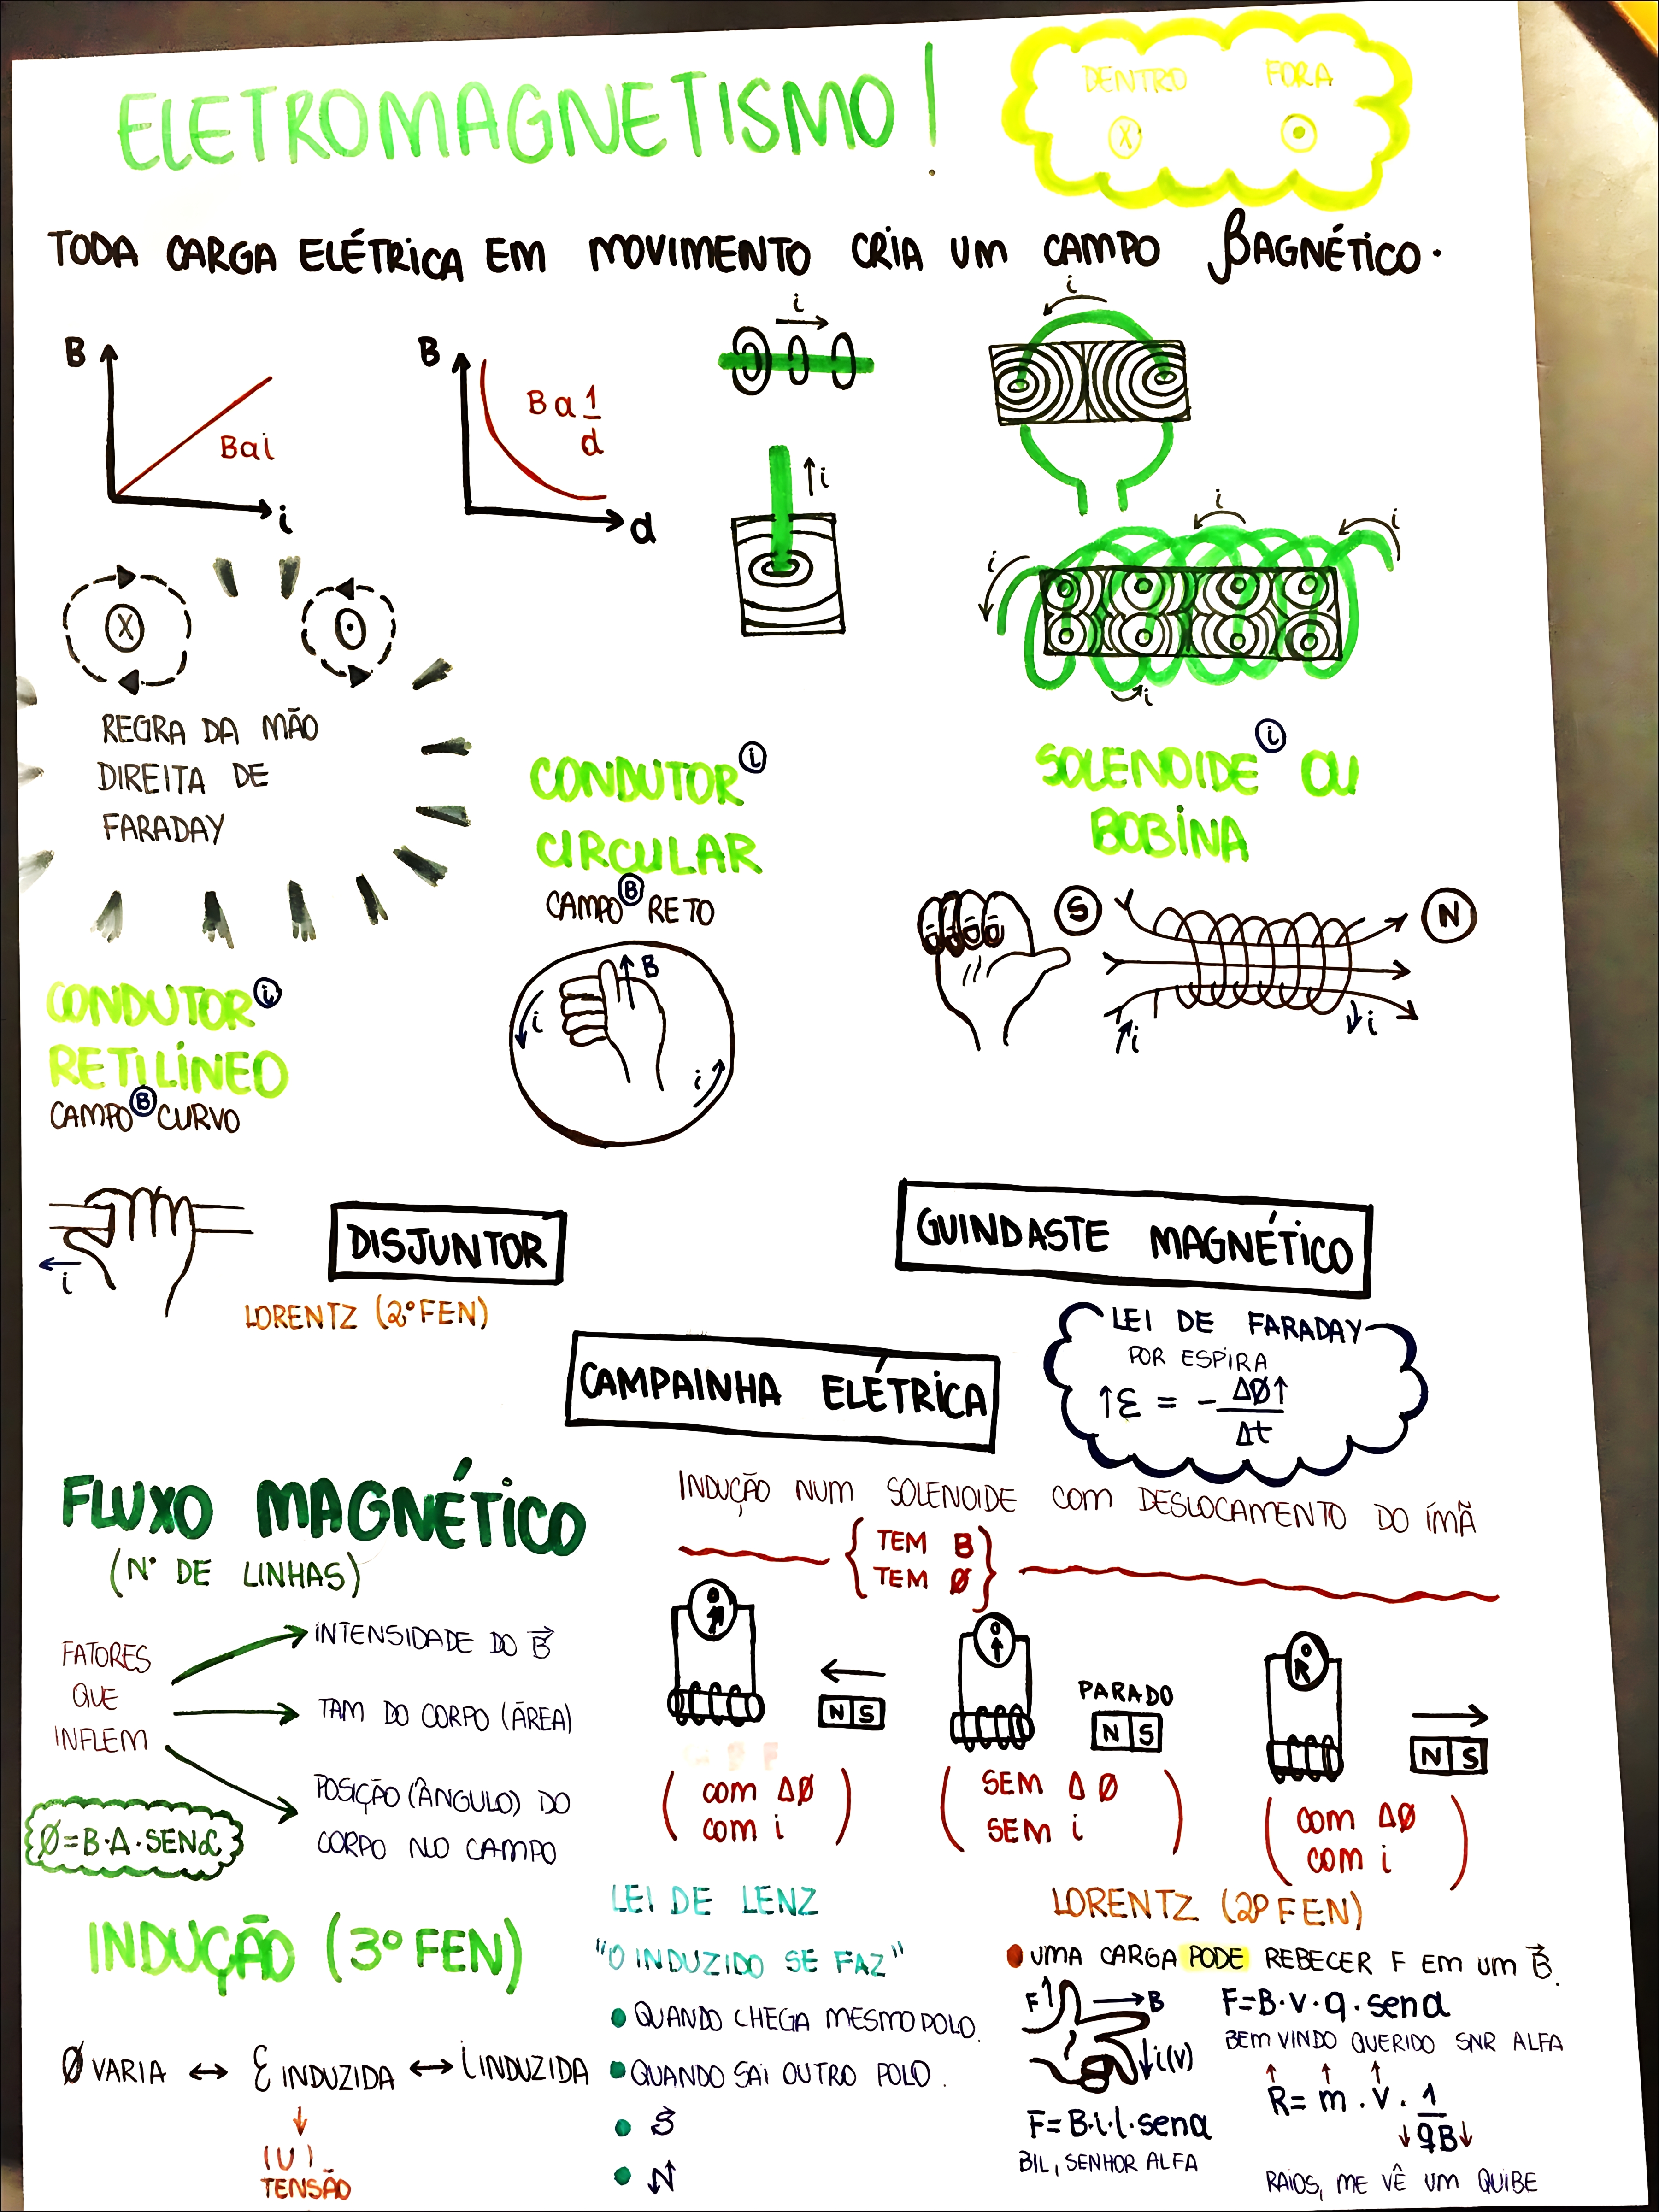 ELETROMAGNETISMO!
DENTRO FORA
X
TODA CARGA ELÉTRICA EM MOVIMENTO CRIA UM CAMPO βAGNÉTICO.
B
Bαi
i
B
Bα 1/d
d
i
i
i
i
i
i
i
X
REGRA DA MÃO
DIREITA DE
FARADAY
CONDUTOR i
CIRCULAR
CAMPO B RETO
B
i
i
SOLENOIDE i OU
BOBINA
S
N
i
i
CONDUTOR i
RETILÍNEO
CAMPO B CURVO
i
DISJUNTOR
LORENTZ (2º FEN)
GUINDASTE MAGNÉTICO
CAMPAINHA ELÉTRICA
LEI DE FARADAY
POR ESPIRA
↑Ɛ = - ΔØ↑
Δt
FLUXO MAGNÉTICO
(Nº DE LINHAS)
FATORES
QUE
INFLEM
INTENSIDADE DO B⃗
TAM DO CORPO (ÁREA)
POSIÇÃO (ÂNGULO) DO
CORPO NO CAMPO
Ø=B·A·SENα
INDUÇÃO NUM SOLENOIDE COM DESLOCAMENTO DO ÍMÃ
TEM B
TEM Ø
0
N S
(com ΔØ
com i)
0
PARADO
N S
(SEM ΔØ
SEM i)
0
N S
(com ΔØ
com i)
INDUÇÃO (3º FEN)
Ø VARIA ↔ Ɛ INDUZIDA ↔ i INDUZIDA
↓
(U)
TENSÃO
LEI DE LENZ
"O INDUZIDO SE FAZ"
QUANDO CHEGA MESMO POLO.
QUANDO SAI OUTRO POLO.
S
N
LORENTZ (2º FEN)
UMA CARGA PODE REBECER F EM UM B⃗.
F↑ →B
↓i(v)
F=B·i·l·senα
BIL, SENHOR ALFA
F=B·v·q·senα
BEM VINDO QUERIDO SNR ALFA
↑ ↑ ↑
R= m . v . 1
↓qB↓
RAIOS, ME VÊ UM QUIBE